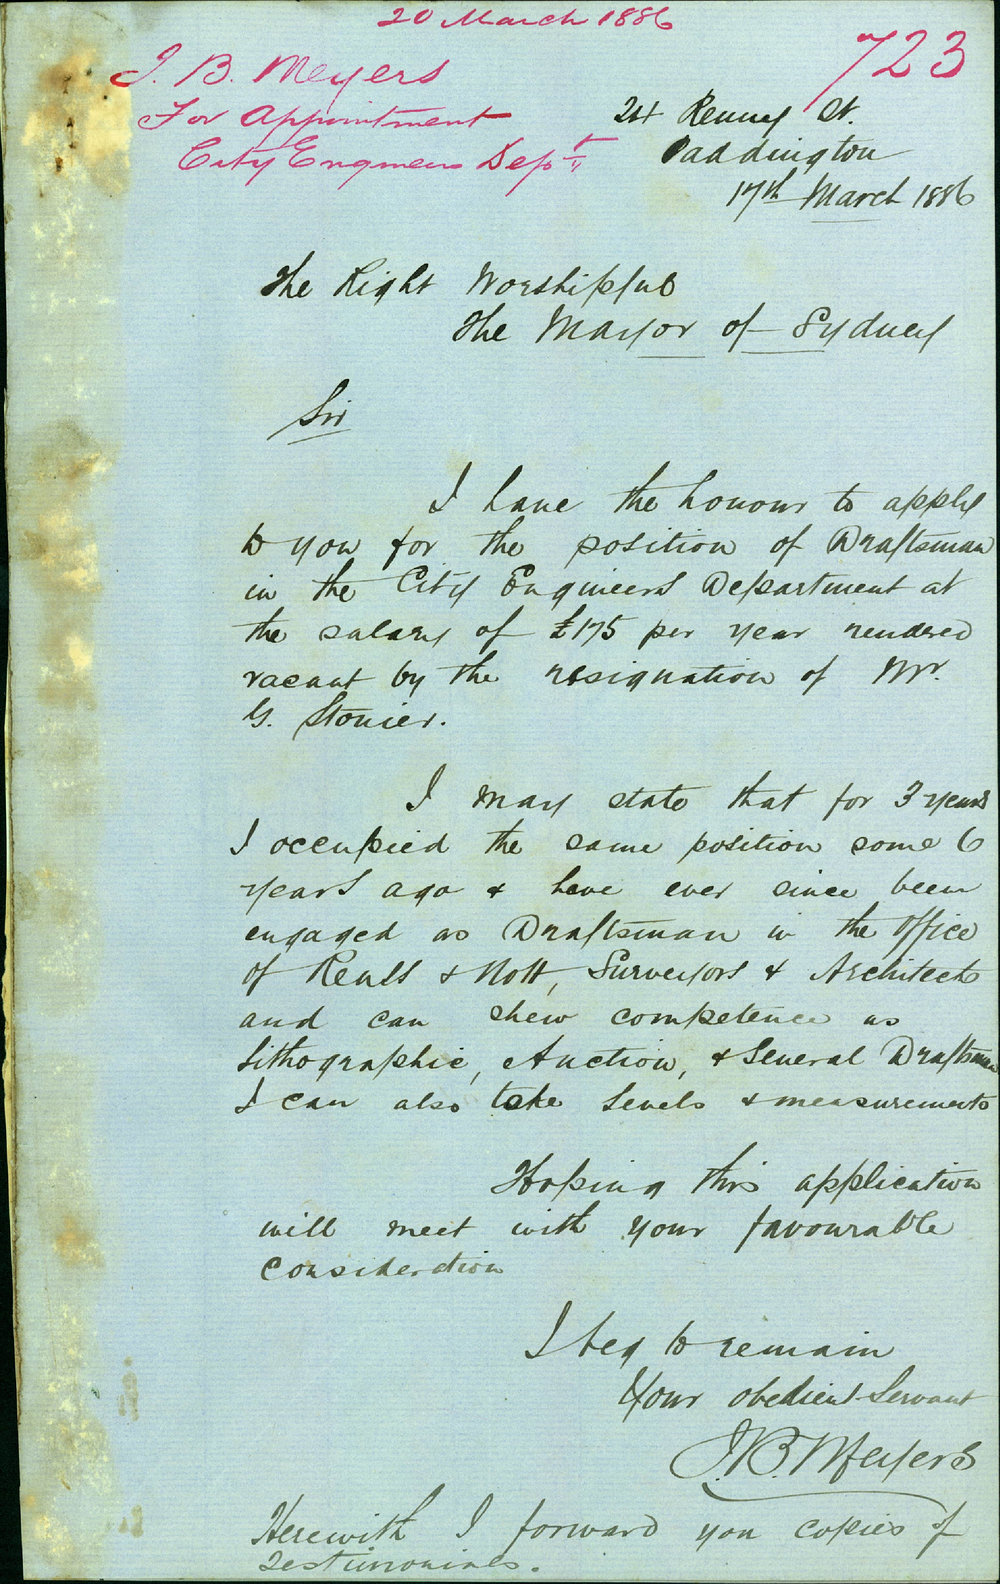 20 March 1886
723
J. B. Meyers
For Appointment
City Engineers Dept
24 Renny St.
Paddington
17th March 1886
The Right Worshipful
The Mayor of Sydney
Sir
I have the honour to apply
to you for the position of Draftsman
in the City Engineers Department at
the salary of £175 per year rendered
vacant by the resignation of Mr.
G. Stonier.
I may state that for 3 years
I occupied the same position some 6
years ago & have ever since been
engaged as Draftsman in the office
of & Nott, Surveyors & Architects
and can shew competence as
Lithographic, Auction, & General Draftsman
I can also take Levels & measurements
Hoping this application
will meet with your favourable
consideration
I beg to remain
Your obedient Servant
J. B. Meyers
Herewith I forward you copies of
testimonials.